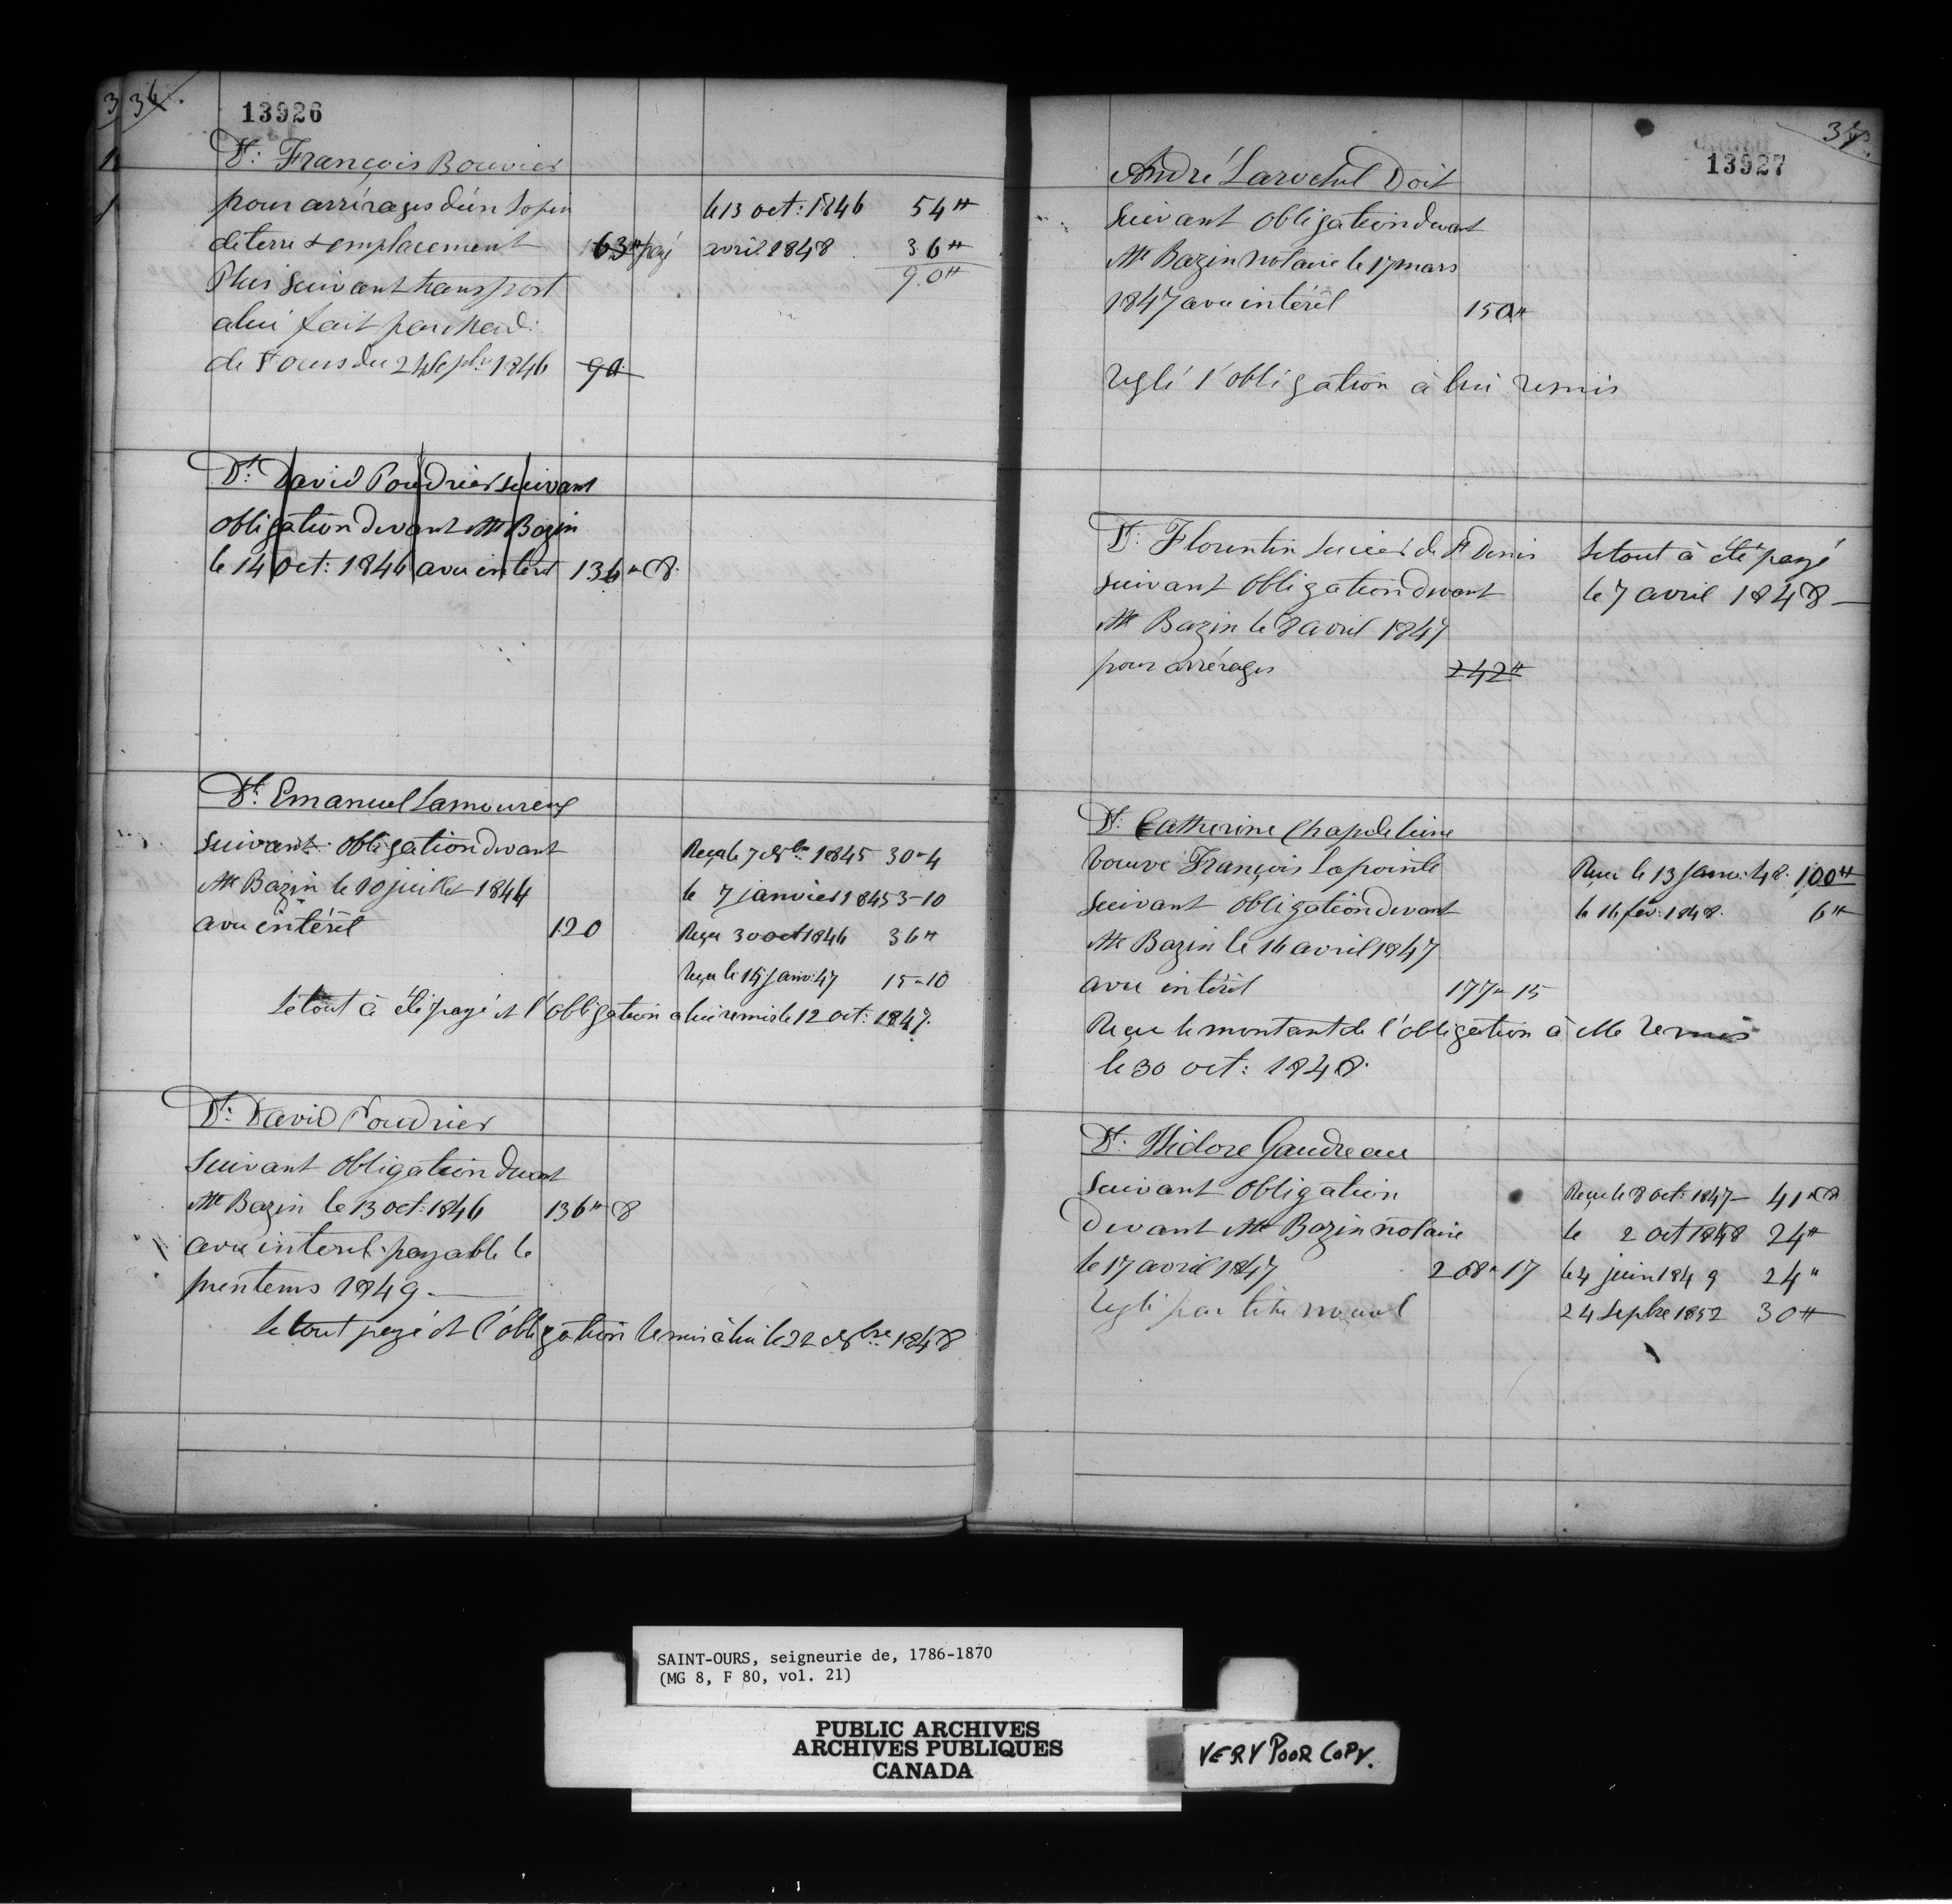 36.
13926
Dt: François Bouvier
pour arrérages d'un lopin le 13 oct: 1846 54"
de terre & emplacement 63" payé avril 1848 36"
Plus suivant transport 90"
a lui fait par Mad:
de St ours du 24 Sepbr 1846 90
Dt: David Poudrier suivant
obligation devant Mtre Bazin
le 14 oct: 1846 avec intérêt 136" 8
Dt: Emanuel Lamoureux
suivant obligation devant Reçu le 7 1845 30-4
Mtre Bazin le 10 juillet 1844 le 7 janvier 1845 3-10
avec intérêt 120 Reçu 30 oct 1846 36"
Reçu le 15 Janv: 47 15-10
Le tout à été payé et l'obligation a lui remis le 12 oct: 1847.
Dt: David Poudrier
Suivant obligation devant
Mtre Bazin le 13 oct: 1846 136" 8
avec interet payable le
printems 1849 —
Le tout payé et l'obligation remis à lui le 22 1848
37.
13927
André Larochel Doit
suivant obligation devant
Mtre Bazin notaire le 17 mars
1847 avec intérêt 150"
Reglé l'obligation à lui remis
Dt: Florentin de St Denis Le tout à été payé
suivant obligation devant le 7 avril 1848 —
Mtre Bazin le 8 avril 1847
pour arrérages 242"
Dt: Catherine Chapdeleine
veuve François Lapointe Reçu le 13 Janv: 48. 100"
suivant obligation devant le 16 fév: 1848. 6"
Mtre Bazin le 16 avril 1847
avec intérêt 177" 15
Reçu le montant de l'obligation à Elle remis
le 30 oct: 1848.
Dt: Isidore Gaudreau
Suivant obligation Reçu le 8 oct: 1847 — 41" 8
devant Mtre Bazin notaire le 2 oct 1848 24"
le 17 avril 1847 268" 17 le 4 juin 1849 24"
Reglé par titre nouvel 24 Sepbre 1852 30"
SAINT-OURS, seigneurie de, 1786-1870
(MG 8, F 80, vol. 21)
PUBLIC ARCHIVES
ARCHIVES PUBLIQUES
CANADA
VERY POOR COPY.